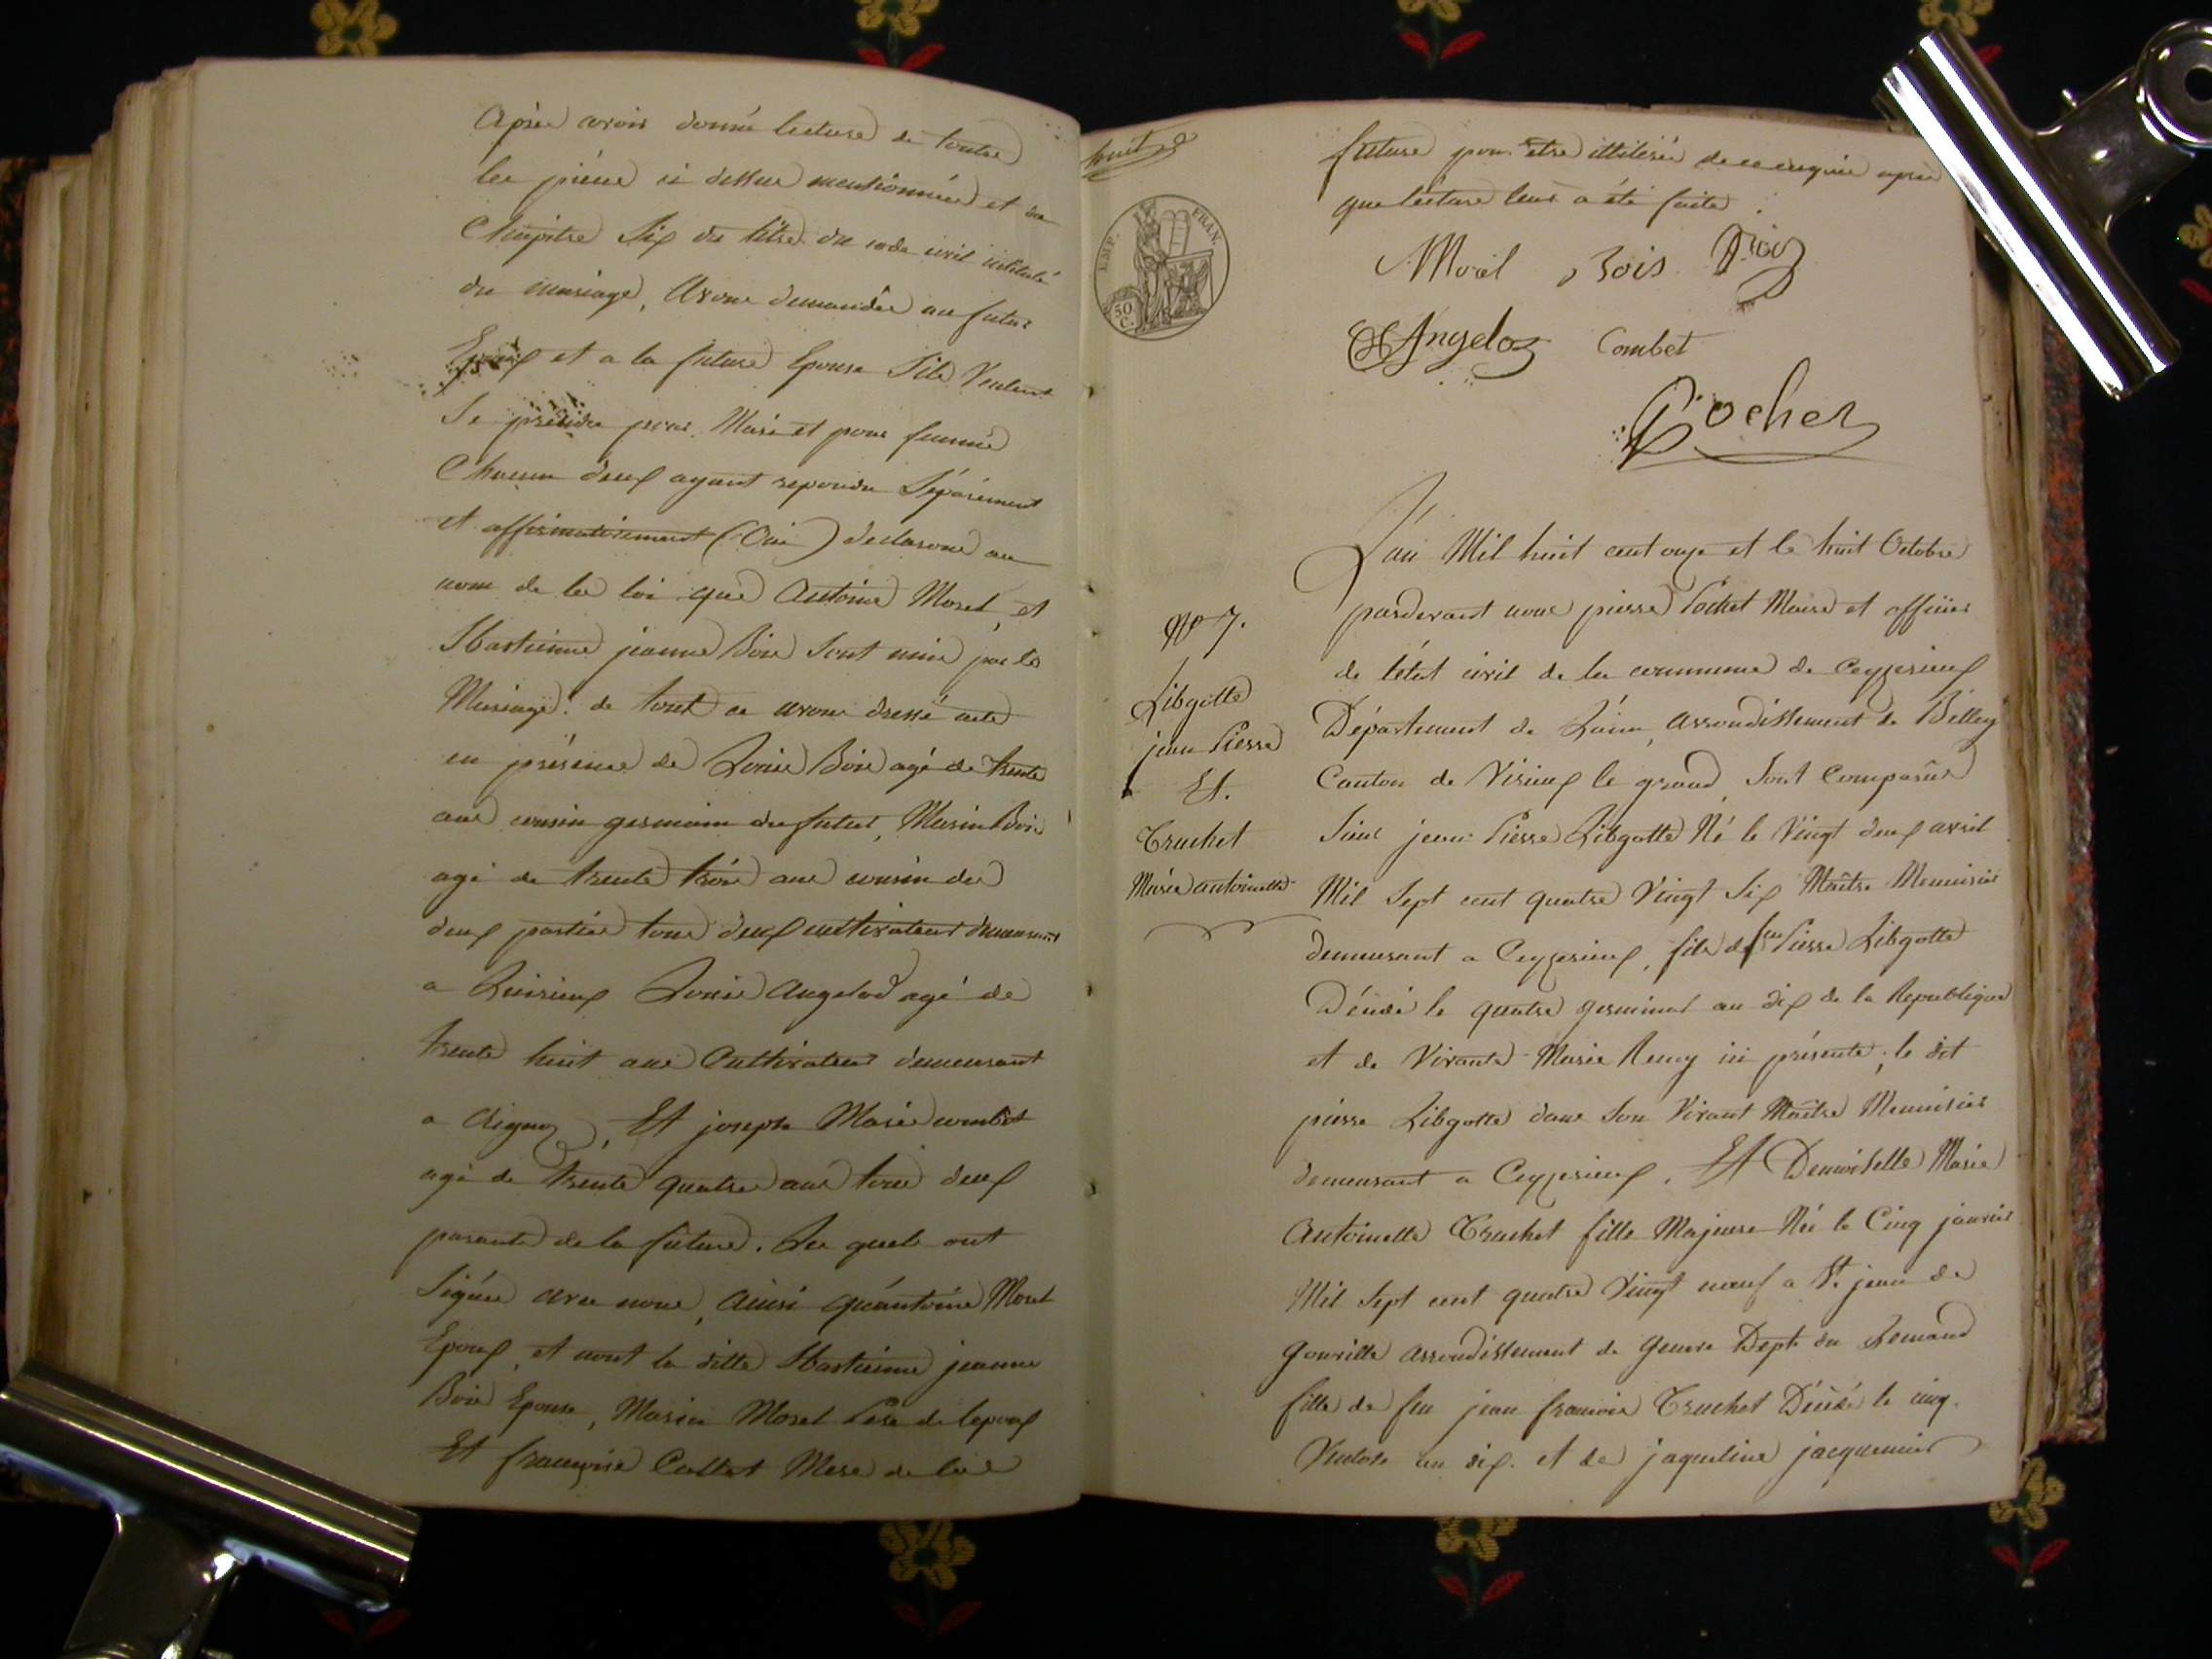 Après avoir donné lecture de toutes
les pièces ci dessus mentionnées et du
Chapitre Six du titre du code civil intitulé
du mariage, Avons demandés au futur
Epoux et a la future Epouse S'ils Veulent
Se prendre pour Mari et pour femme
Chacun deux ayant repondu Séparément
et affirmativement (Oui) declarons au
nom de la loi que Antoine Morel, et
jeanne Bois Sont unis par le
Mariage. de tout ce avons dressé acte
en présence de Louis Bois agé de trente
ans cousin germain du futur, Marin Bois
agé de trente trois ans cousin des
deux parties tous deux cultivateurs demeurant
a Louis Angelod agé de
trente huit ans Cultivateur demeurant
a Aignoz, Et joseph Marie combet
agé de trente quatre ans tous deux
parants de la future. Les quels ont
Signés avec nous, ainsi qu'antoine Morel
Epoux, et nont la ditte jeanne
Bois Epouse, Marin Morel Père de lepoux
Et françoise Collet Mere de la
huit
EMP. FRAN.
50 C.
future pour être illitérés de ce enquis après
que lecture leur a été faite
AMorel Bois
Angeloz Combet
Pochet
L'an Mil huit cent onze et le huit Octobre
pardevant nous pierre Pochet Maire et officier
de l'état civil de la commune de Ceyzerieux
Département de L'ain, arrondissement de Belley
Canton de Virieux le grand, Sont Comparus
Sieur jean Pierre Libgotte Né le Vingt deux avril
Mil Sept cent quatre Vingt Six Maître Menuisier
demeurant a Ceyzerieux, fils de feu Pierre Libgotte
Décédé le quatre germinal an dix de la Republique
et de Vivante Marie Remy ici présente, le dit
pierre Libgotte dans Son Vivant Maître Menuisier
demeurant a Ceyzerieux. Et Demoiselle Marie
Antoinette Truchet fille Majeure Née le Cinq janvier
Mil Sept cent quatre Vingt neuf a St. jean de
Gonville arrondissement de Geneve Dept. du Lemand
fille de feu jean francois Truchet Décédé le cinq
Ventose an dix. et de jaqueline jacquemier
No 7.
Libgotte
jean Pierre
Et.
Truchet
Marie antoinette